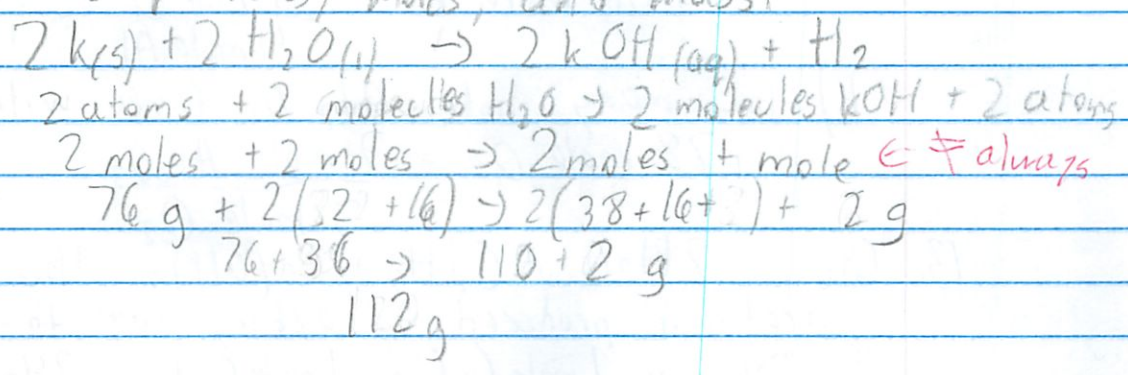 2 k(s) + 2 H₂O(l) → 2 k OH (aq) + H₂
2 atoms + 2 molectles H₂O → 2 molecules kOH + 2 atoms
2 moles + 2 moles → 2 moles + mole ← ≠ always
76 g + 2(2 + 16) → 2(38 + 16 + ) + 2 g
76 + 36 → 110 + 2 g
112 g